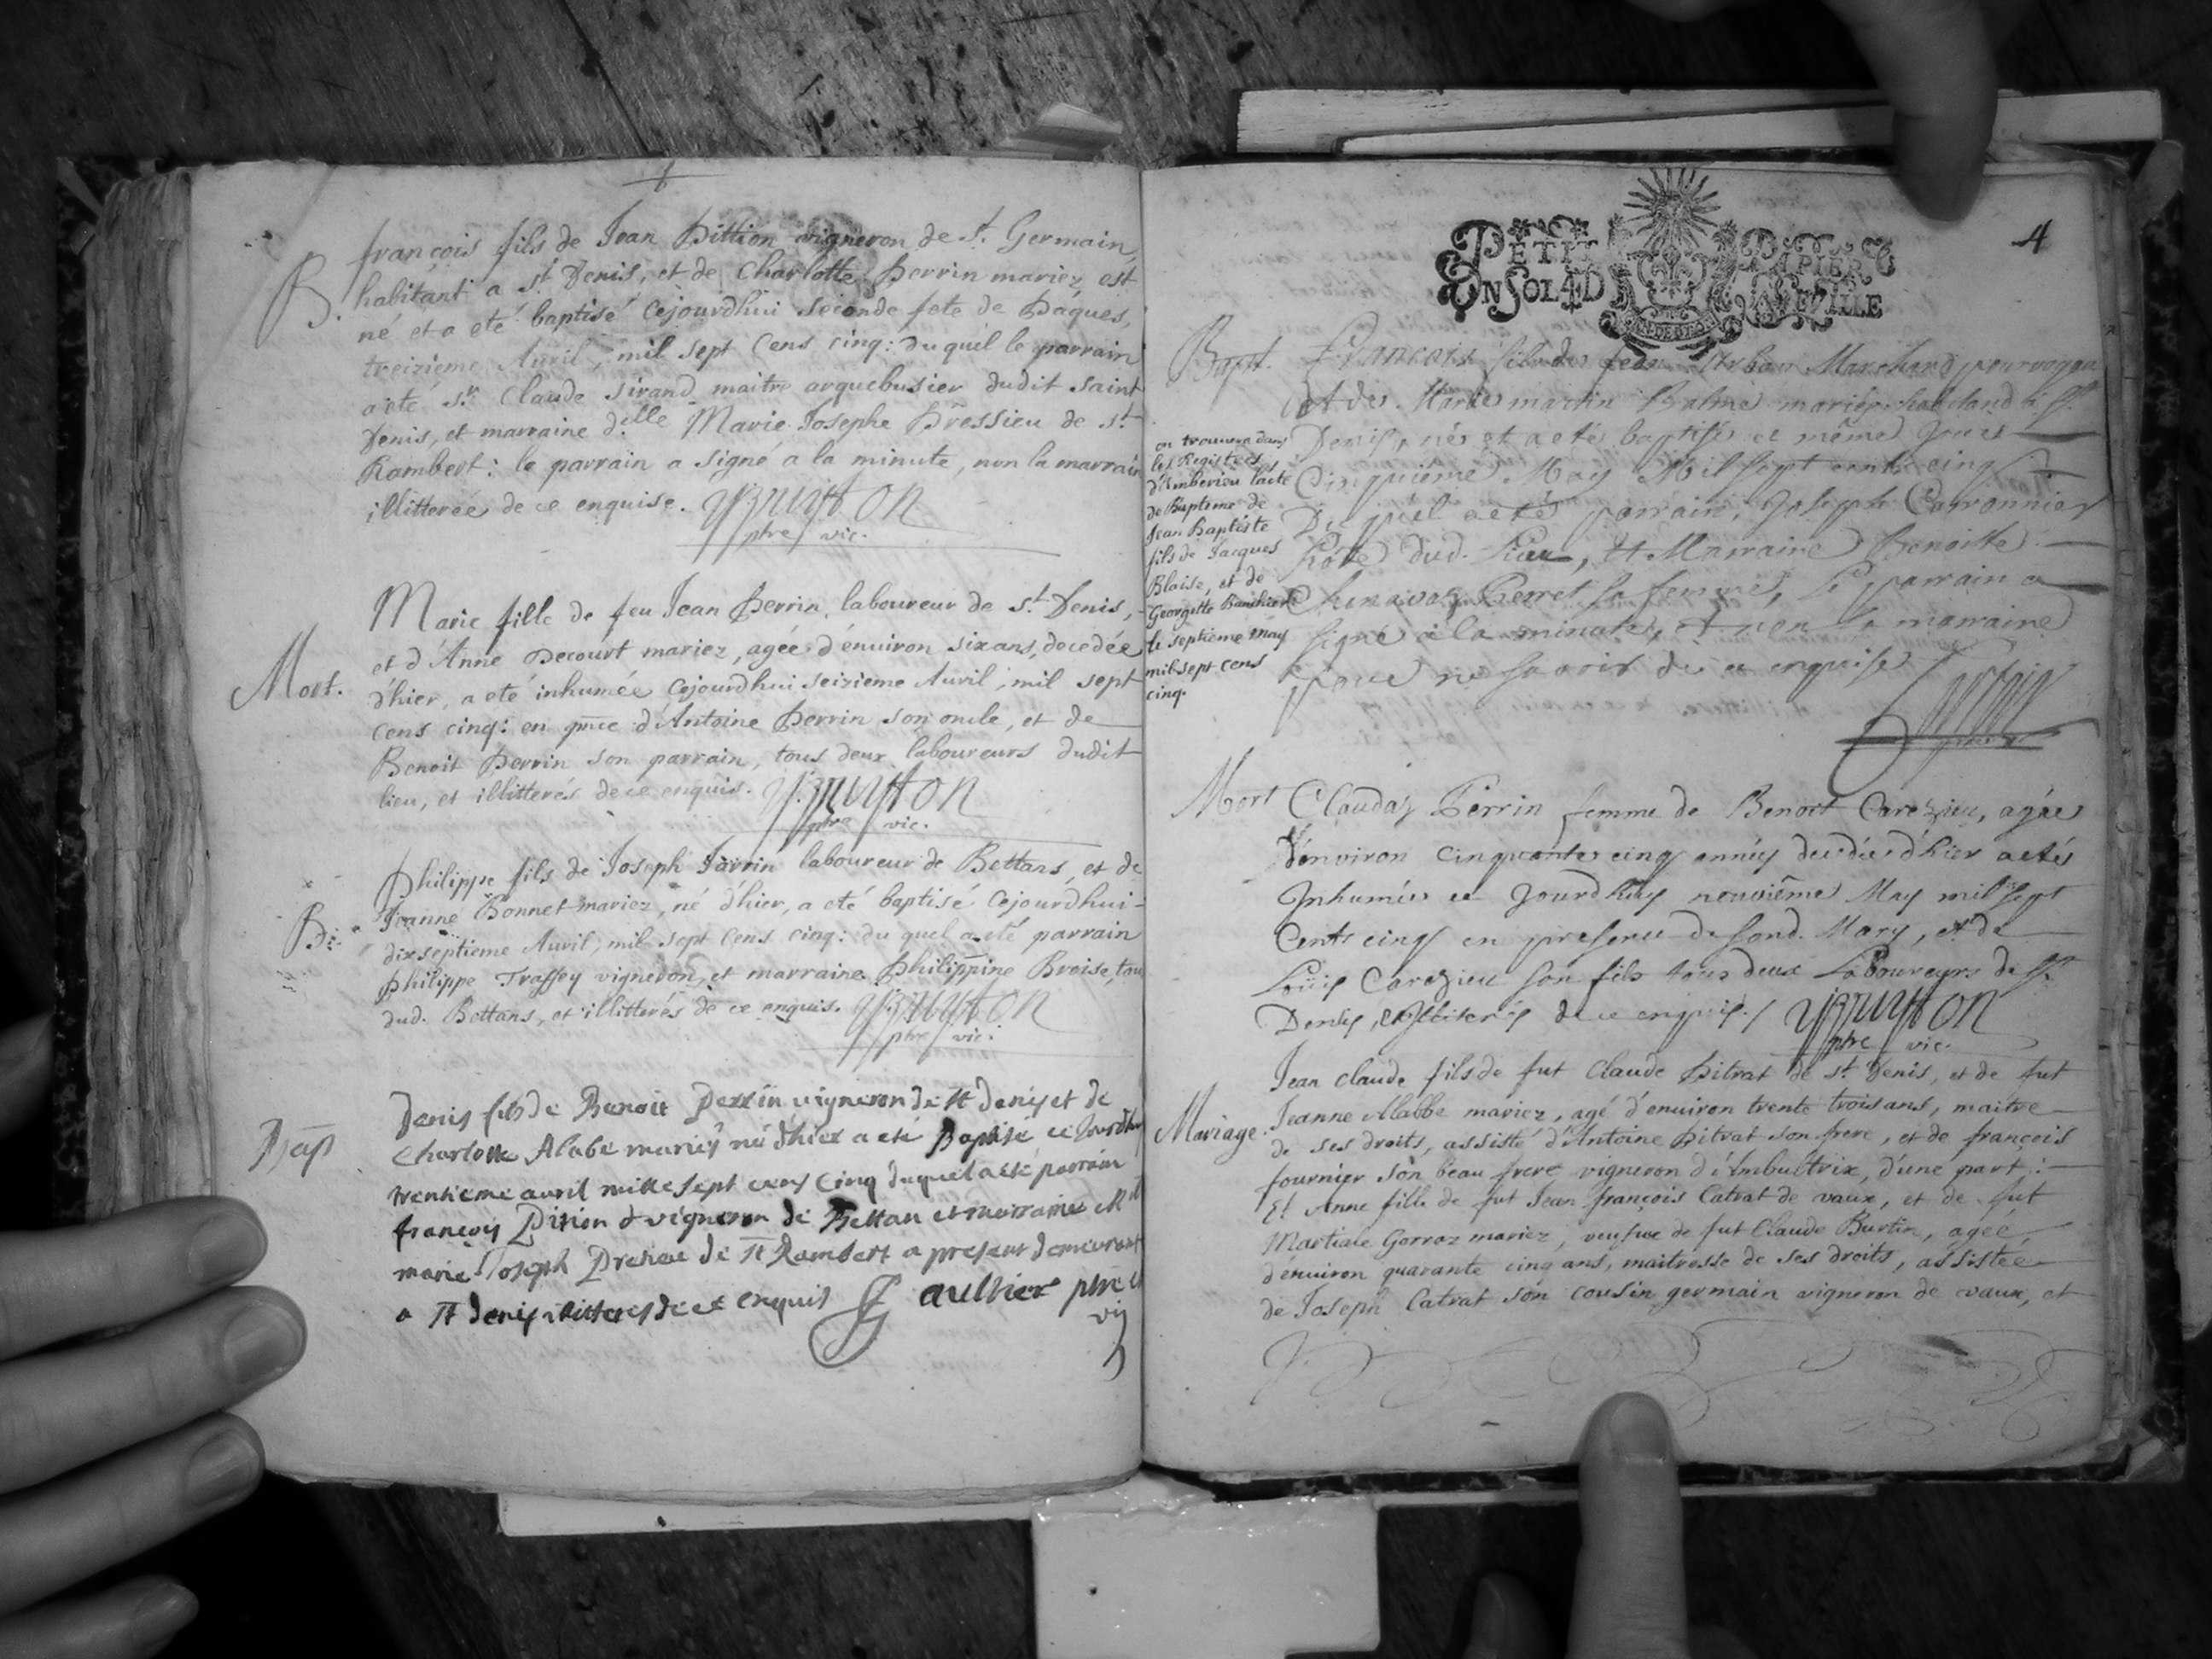 B.
françois fils de Jean Pittion vigneron de st. Germain,
habitant a st Denis, et de Charlotte Perrin mariez, est
né et a eté baptisé cejourdhui seconde fete de Pâques,
treizieme Auril, mil sept cens cinq: duquel le parrain
a eté sr. Claude Sirand maitre arquebusier dudit saint
Denis, et marraine dlle Marie Josephe Bressieu de st
Rambert: le parrain a signé a la minute, non la marraine
illitterée de ce enquise.
ptre vic.
Mort.
Marie fille de feu Jean Perrin, laboureur de st. Denis,
et d'Anne Decourt mariez, agée d'enuiron six ans, decedée
d'hier, a eté inhumée cejourdhui seizieme Auril, mil sept
cens cinq: en pnce d'Antoine Perrin son oncle, et de
Benoit Perrin son parrain, tous deux laboureurs dudit
lieu, et illitterés de ce enquis.
ptre vic.
B.
Philippe fils de Joseph Jarrin laboureur de Bettans, et de
Jeanne Bonnet mariez, né d'hier, a eté baptisé cejourdhui
dixseptieme Auril, mil sept cens cinq: du quel a eté parrain
philippe Traffey vigneron, et marraine Philippine Broise, tous
dud. Bettans, et illitterés de ce enquis.
ptre vic.
Bap
Denis fils de Benoit Perrin vigneron de st denis et de
Charlotte Alabe mariés né d'hier a eté Baptisé ce
trentieme auril mille sept cens cinq duquel a eté parrain
françois Pition vigneron de Bettan et marraine
marie Joseph de st Rambert a present demeurant
a st denis illitteres de ce enquis aulbier ptre
4
PETIT PAPIER
EN SOL 4 D
Bapt.
François fils de Jean Marchand
Et de Marie martin Balme mariés habitand à st.
Denis, né et a eté baptisé ce même jour
Cinquieme May Mil sept cents cinq
Duquel a eté parrain, Joseph Carronnier
hôte dud. Lieu, et Marraine Benoitte
Perret sa femme, Le parrain a
signé à la minute, et non la marraine
pour ne savoir de ce enquise
on trouuera dans
les Registres
d'Amberieu l'acte
de Bapteme de
Jean Baptiste
fils de Jacques
Blaise, et de
Georgette
le septieme may
mil sept cens
cinq.
Mort
Clauda Perrin femme de Benoit Carezieu, agée
d'environ cinquante cinq années decedée d'hier a eté
Inhumée ce Jourdhuy neuvième May mil sept
Cents cinq en presence de sond. Mary, et de
Loüis Carezieu son fils tous deux Laboureurs de st.
Denis, et Illiterés de ce enquis.
ptre vic.
Mariage.
Jean claude fils de fut Claude Pitrat de st. Denis, et de fut
Jeanne Allabbe mariez, agé d'enuiron trente trois ans, maitre
de ses droits, assisté d'Antoine Pitrat son frere, et de françois
fournier son beau frere vigneron d'Ambutrix, d'une part:
Et Anne fille de fut Jean françois Catrat de vaux, et de fut
Martiale Gorroz mariez, veufue de fut Claude Burtin, agée
d'enuiron quarante cinq ans, maitresse de ses droits, assistée
de Joseph Catrat son cousin germain vigneron de vaux, et